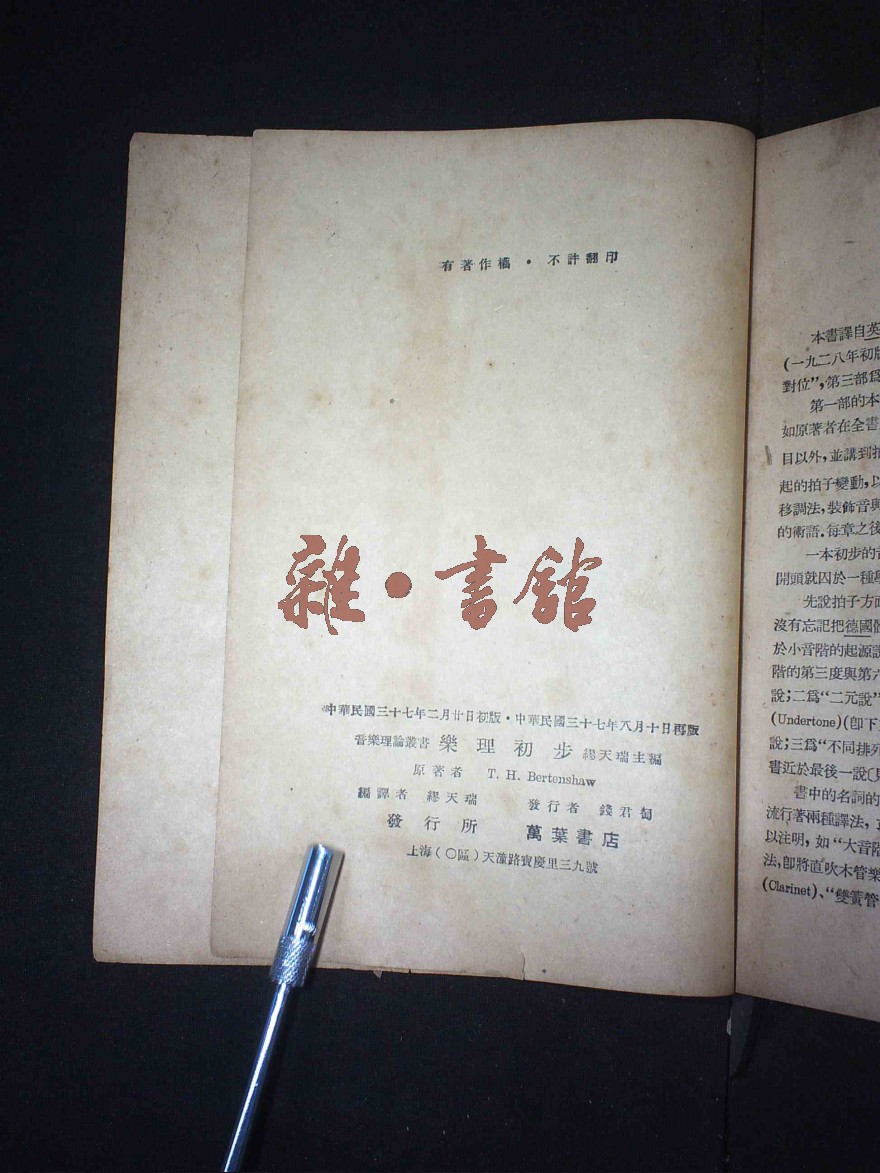 有著作權・不許翻印
雜・書館
中華民國三十七年二月廿日初版・中華民國三十七年八月十日再版
音樂理論叢書 樂理初步 繆天瑞主編
原著者 T. H. Bertenshaw
編譯者 繆天瑞 發行者 錢君匋
發行所 萬葉書店
上海(〇區)天潼路寶慶里三九號
本書譯自英
(一九二八年初版
對位”,第三部爲
第一部的本
如原著者在全書
目以外,並講到拍
起的拍子變動,以
移調法,裝飾音與
的術語.每章之後
一本初步的音
開頭就囚於一種學
先說拍子方面
沒有忘記把德國體
於小音階的起源說
階的第三度與第六
說;二爲“二元說”
(Undertone)(卽下
說;三爲“不同排列
書近於最後一說〔見
書中的名詞的
流行著兩種譯法,
以注明, 如“大音階
法,卽將直吹木管樂
(Clarinet)、“雙簧管